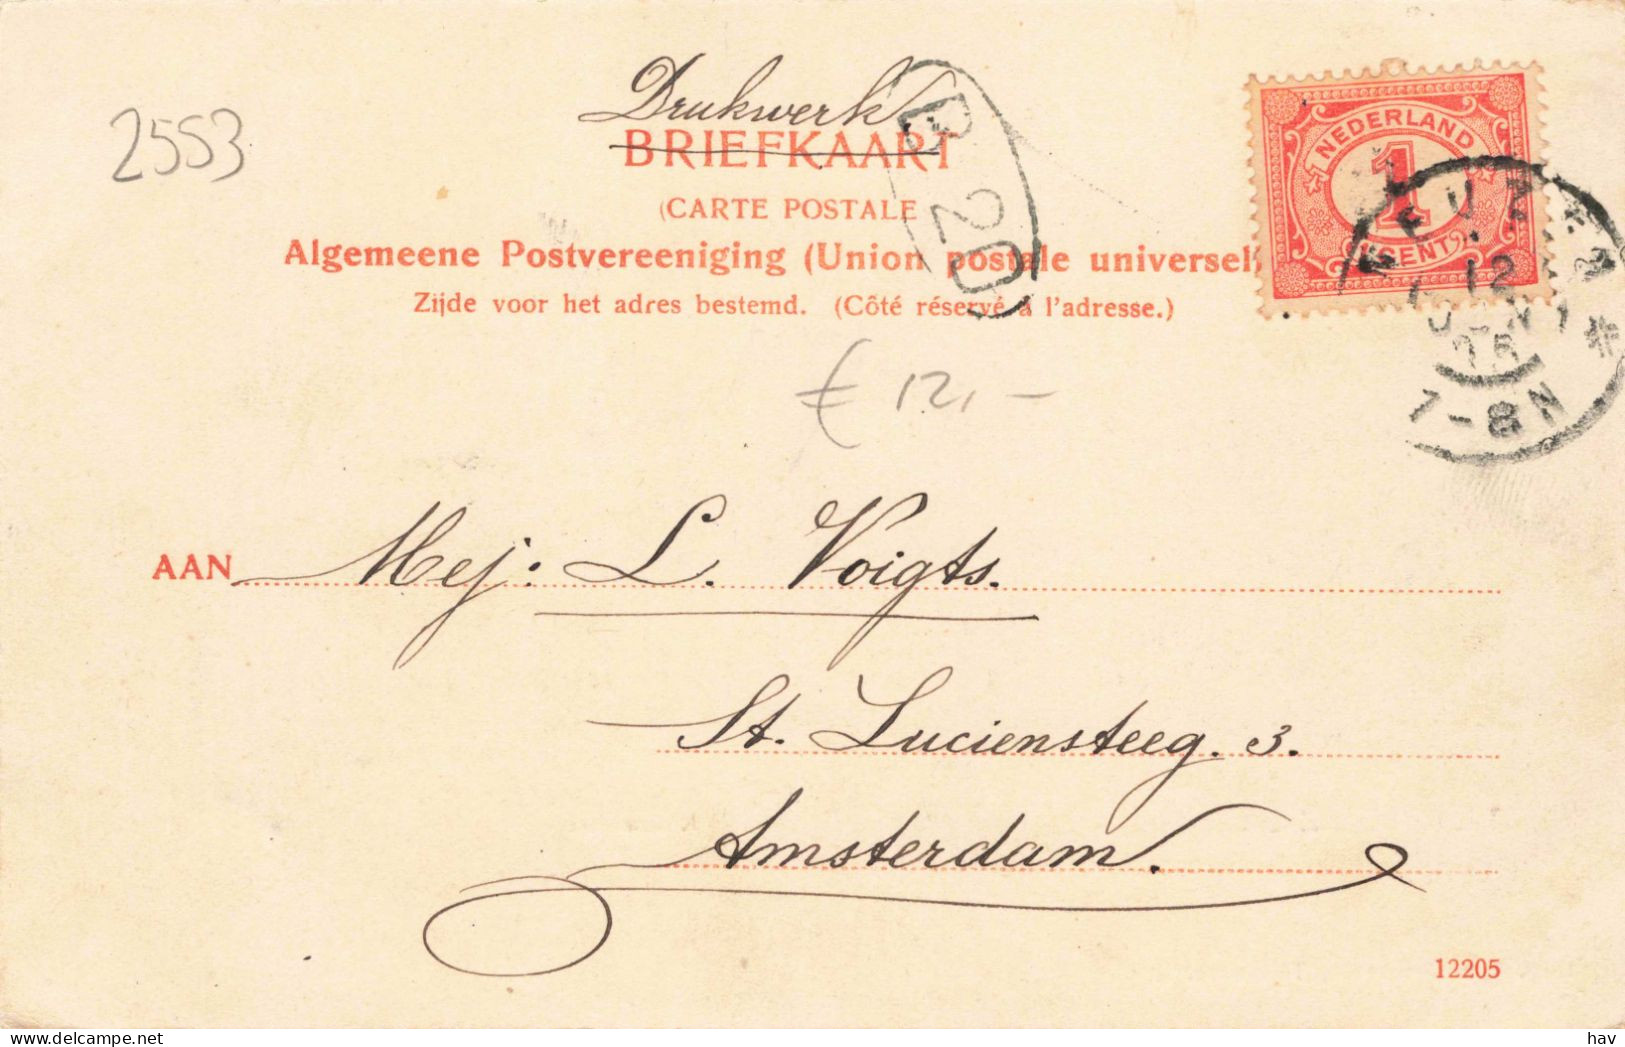 2553
Drukwerk
BRIEFKAART
(CARTE POSTALE
Algemeene Postvereeniging (Union postale universel
Zijde voor het adres bestemd. (Côté réservé à l'adresse.)
B 20
NEDERLAND
1
CENT
12
7-8N
€ 12,-
AAN Mej: L. Voigts.
St. Luciensteeg. 3.
Amsterdam.
12205
hav